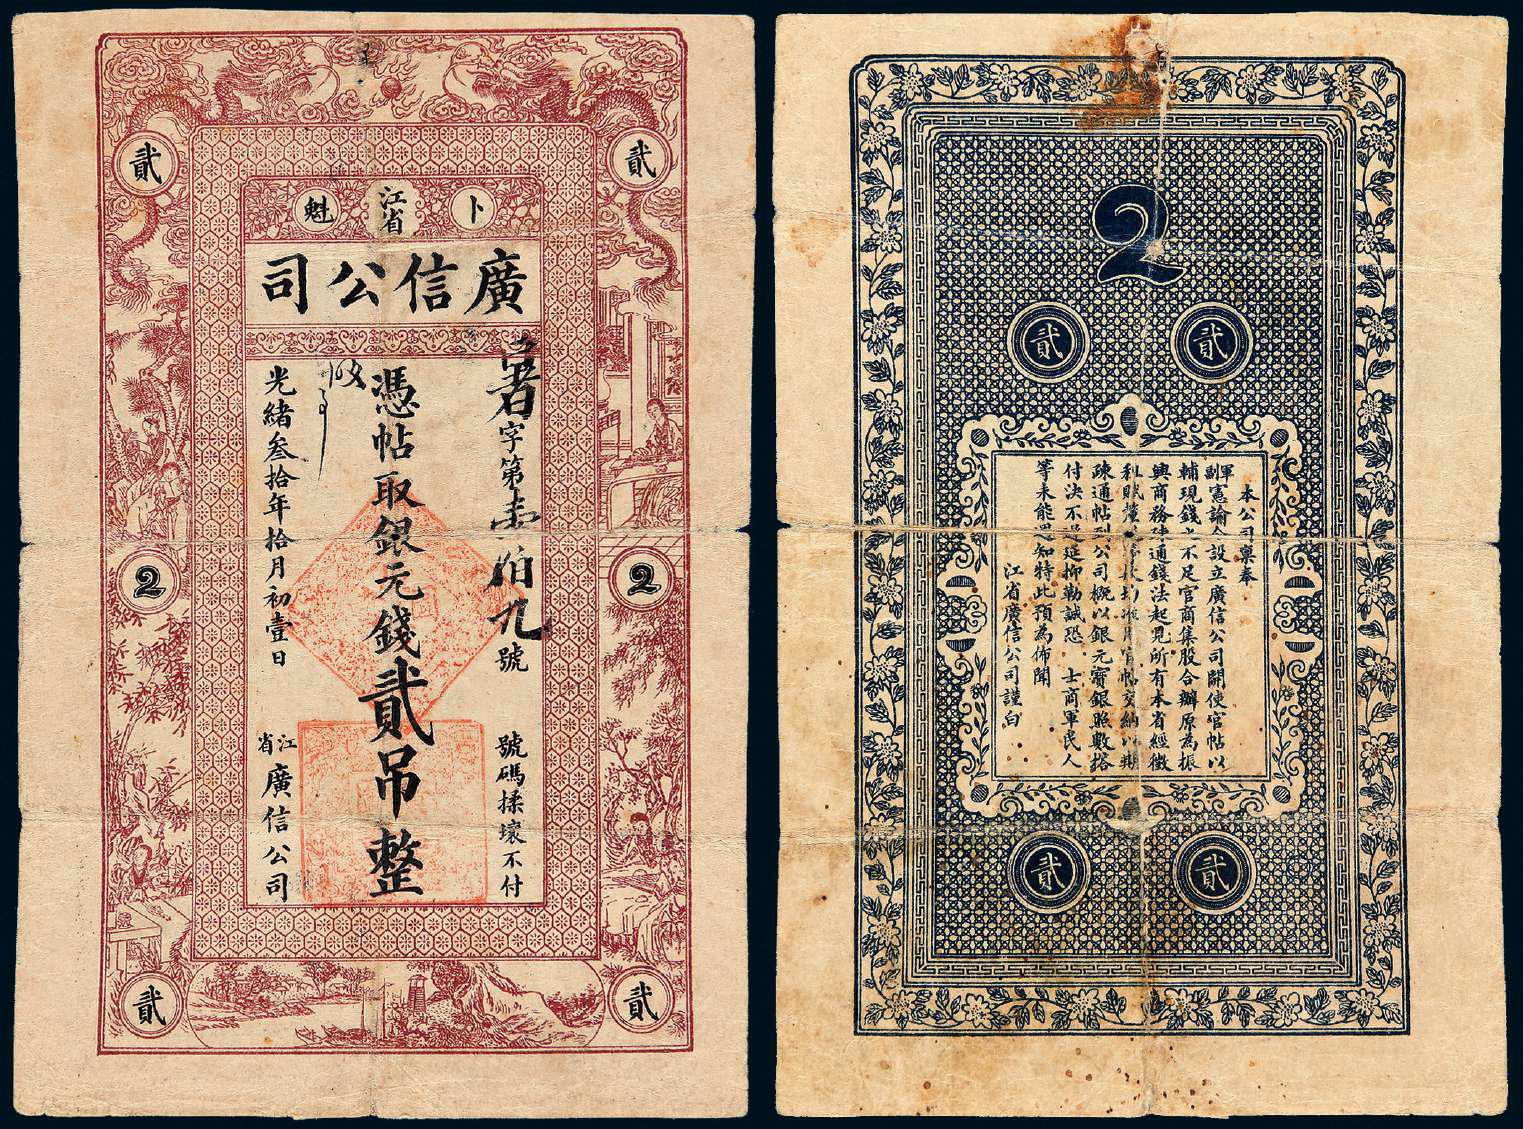 貳
貳
卜
江省
魁
廣信公司
字第壹佰九號
號碼揉壞不付
憑帖取銀元錢貳吊整
光緒叁拾年拾月初壹日
江省
廣信公司
2
2
貳
貳
2
貳
貳
本公司稟奉
軍副憲諭令設立廣信公司開使官帖以
輔現錢之不足官商集股合辦原為振
興商務疎通錢法起見所有本省經徵
利賦
官帖交納以期
疎通帖到公司概以銀元寶銀照數撥
付決不遲延抑勒誠恐 士商軍民人
等未能週知特此預為佈聞
江省廣信公司謹白
貳
貳